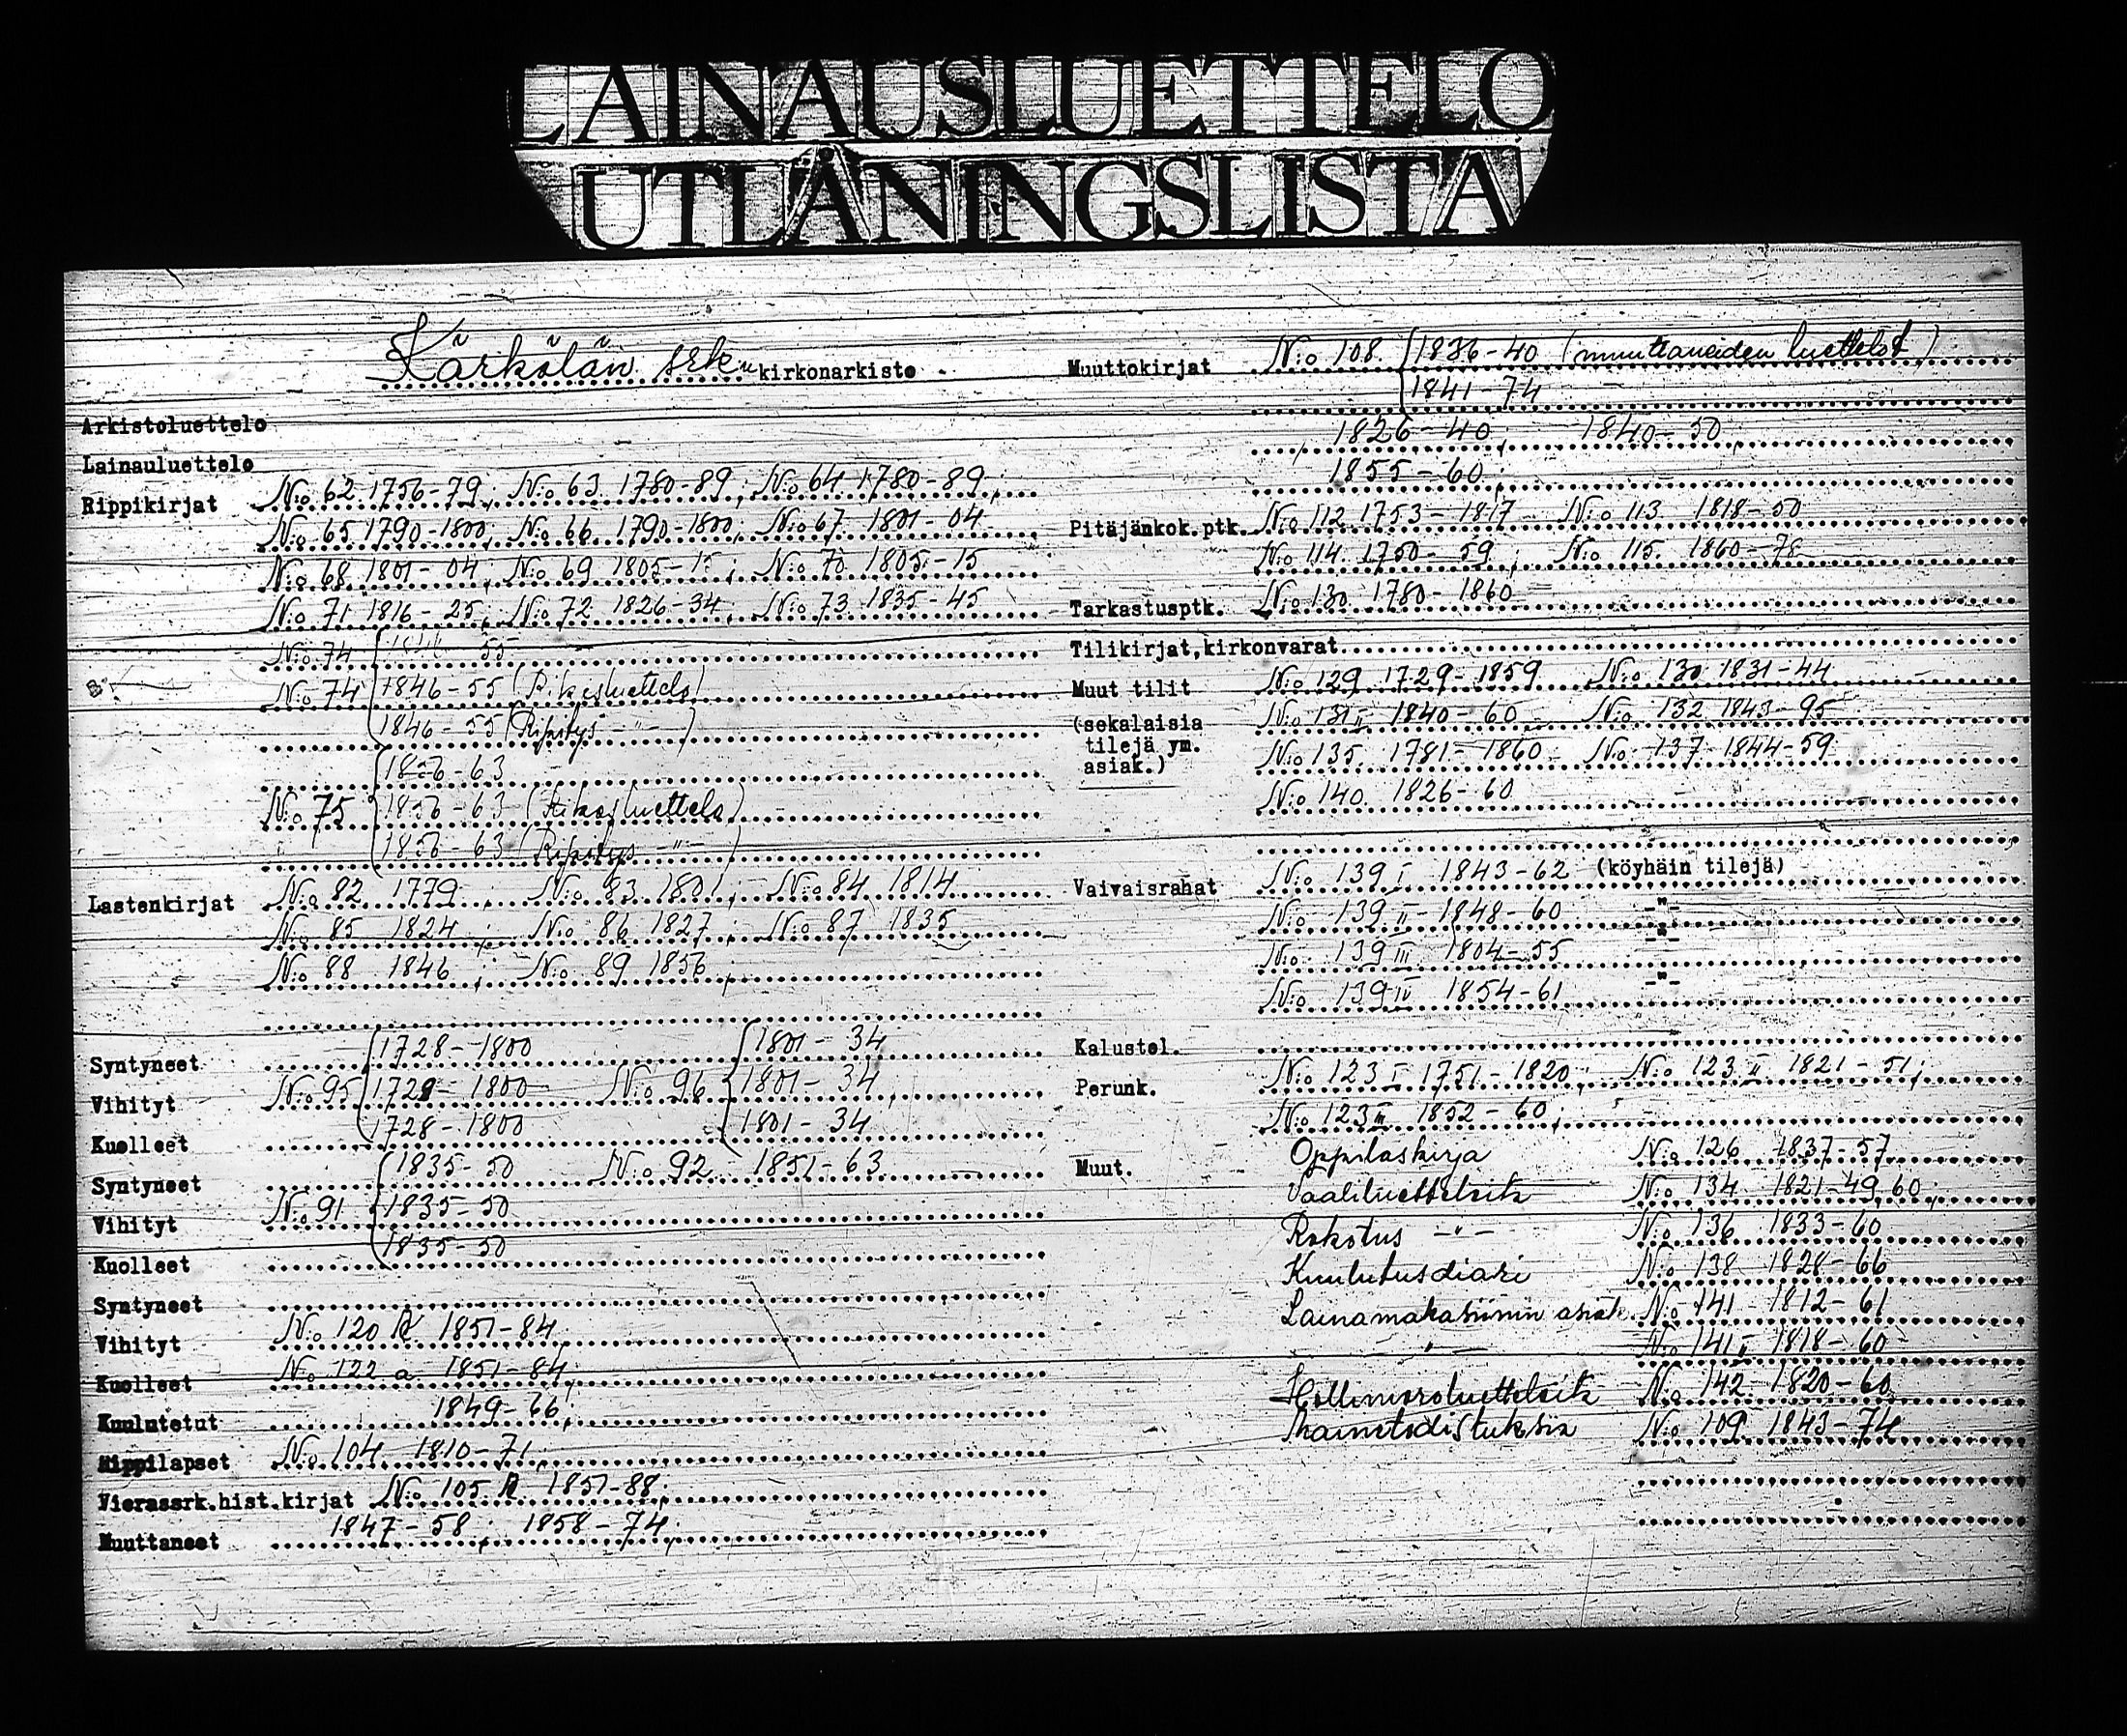 LAINAUSLUETTELO
UTLÅNINGSLISTA
Kärkölän srk:n kirkonarkisto
Arkistoluettelo
Lainauluettelo
Rippikirjat N:o 62 1756-79; N:o 63 1780-89; N:o 64 1780-89;
N:o 65 1790-1800; N:o 66 1790-1800; N:o 67 1801-04
N:o 68 1801-04; N:o 69 1805-15; N:o 70 1805-15
N:o 71 1816-25; N:o 72 1826-34; N:o 73 1835-45
N:o 74 1846-55
N:o 74 1846-55 (Rikosluettelo)
1846-55 (Ripitys -"-)
1856-63
N:o 75 1856-63 (Rikosluettelo)
1856-63 (Ripitys -"-)
Lastenkirjat N:o 82 1779; N:o 83 1801; N:o 84 1814
N:o 85 1824; N:o 86 1827; N:o 87 1835
N:o 88 1846; N:o 89 1856;
Syntyneet 1728-1800 1801-34
Vihityt N:o 95 1728-1800 N:o 96 1801-34
Kuolleet 1728-1800 1801-34
Syntyneet 1835-50 N:o 92 1851-63
Vihityt N:o 91 1835-50
Kuolleet 1835-50
Syntyneet
Vihityt N:o 120 1851-84
Kuolleet N:o 122 a 1851-84;
Kuulutetut 1849-66;
Rippilapset N:o 104 1810-71
Vierassrk.hist.kirjat N:o 105 1851-88;
Muuttaneet 1847-58; 1858-74;
Muuttokirjat N:o 108 1836-40 (muuttaneiden luettelot)
1841-74
1826-40; 1840-50
1855-60;
Pitäjänkok.ptk. N:o 112 1753-1817 N:o 113 1818-50
N:o 114 1750-59; N:o 115 1860-78
Tarkastusptk. N:o 130 1780-1860
Tilikirjat,kirkonvarat
Muut tilit N:o 129 1729-1859 N:o 130 1831-44
(sekalaisia N:o 131 II 1840-60 N:o 132 1843-95
tilejä ym. N:o 135 1781-1860 N:o 137 1844-59
asiak.)
N:o 140 1826-60
Vaivaisrahat N:o 139 I 1843-62 (köyhäin tilejä)
N:o 139 II 1848-60 -"-
N:o 139 III 1804-55 -"-
N:o 139 IV 1854-61 -"-
Kalustel.
Perunk. N:o 123 I 1751-1820; N:o 123 II 1821-51;
N:o 123 III 1852-60;
Muut. Oppilaskirja N:o 126 1837-57
Vaaliluetteloita N:o 134 1821-49,60;
Rokotus -"- N:o 136 1833-60
Kuulutusdiari N:o 138 1828-66
Lainamakasiinin asiak. N:o 141 1812-61
-"- N:o 141 II 1818-60
N:o 142 1820-60
Mainetodistuksia N:o 109 1843-74